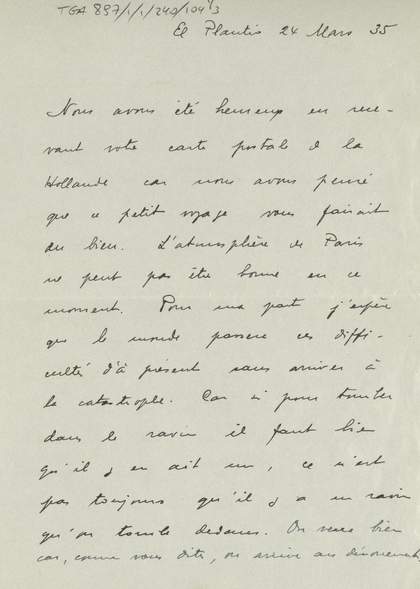 TGA 897/1/1/240/104 3
El Plantio 24 Mars 35
Nous avons été heureux en rece-
vant votre carte postale d la
Hollande car nous avons pensé
que ce petit voyage vous fairait
du bien. L'atmosphère de Paris
ne peut pas être bonne en ce
moment. Pour ma part j'espère
que le monde passera ces diffi-
cultés d'à présent sans arriver à
la catastrophe. Car si pour tomber
dans le ravin il faut bien
qu'il y en ait un, ce n'est
pas toujours qu'il y a un ravin
qu'on tombe dedans. On verra bien
car, comme vous dites, on arrive au dénouement